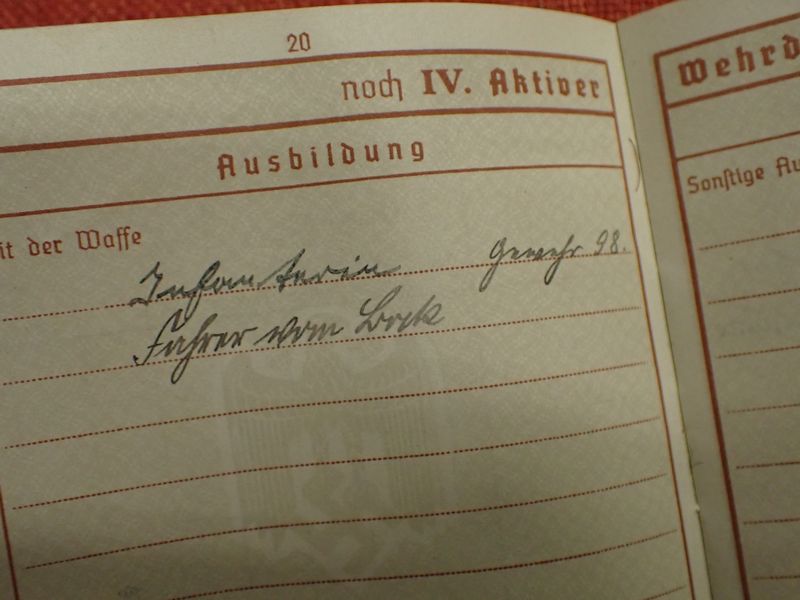 20
noch IV. Aktiver
Wehrd
Ausbildung
Sonstige Au
it der Waffe
Infanterie Gewehr 98.
Fahrer vom Bock